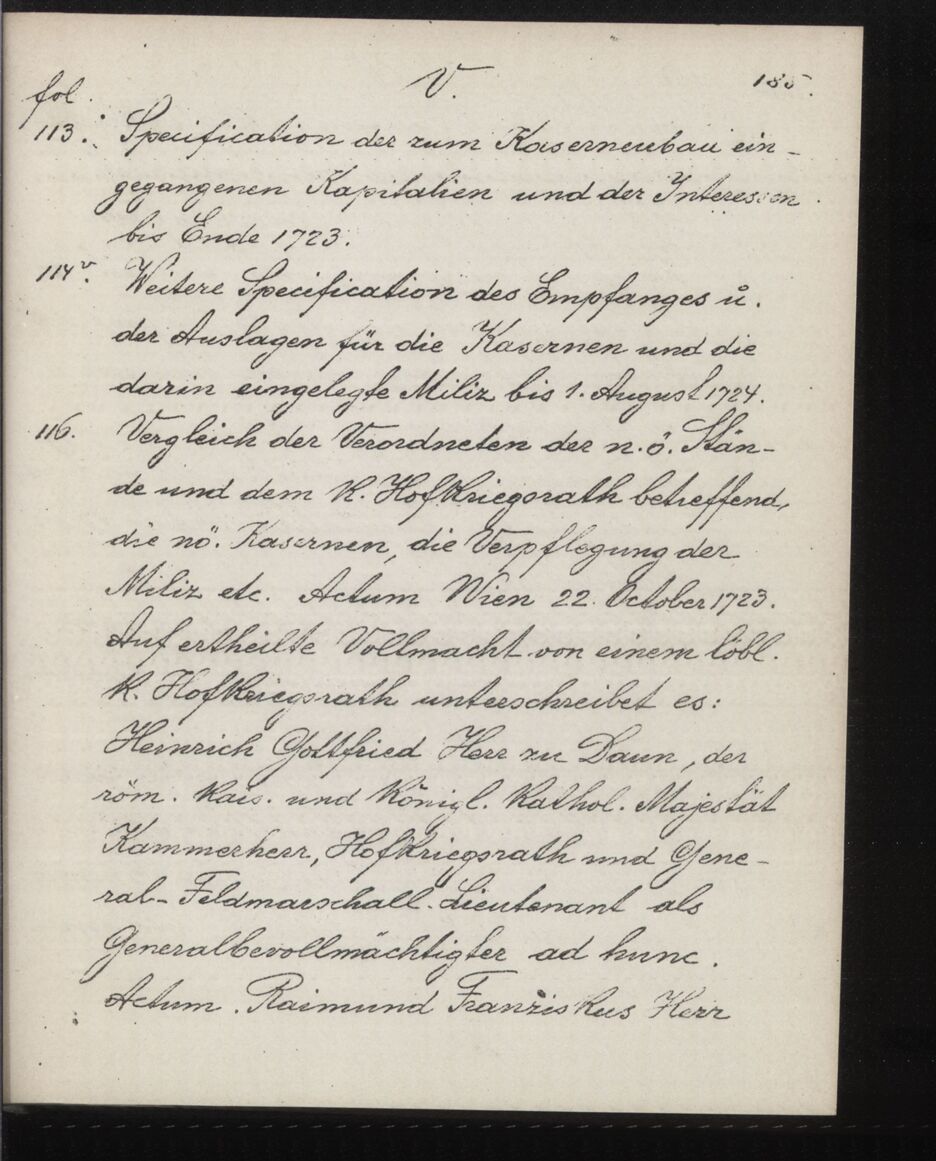 V. 185.
fol.
113. Specification der zum Kasernenbau ein-
gegangenen Kapitalien und der Interessen
bis Ende 1723.
114v. Weitere Specification des Empfanges u.
der Auslagen für die Kasernen und die
darin eingelegte Miliz bis 1. August 1724.
116. Vergleich der Verordneten der n. ö. Stän-
de und dem K. Hofkriegsrath betreffend,
die nö. Kasernen, die Verpflegung der
Miliz etc. Actum Wien 22. October 1723.
Auf ertheilte Vollmacht von einem löbl.
K. Hofkriegsrath unterschreibet es:
Heinrich Gottfried Herr zu Daun, der
röm. kais. und königl. kathol. Majestät
Kammerherr, Hofkriegsrath und Gene-
ral-Feldmarschall-Lieutenant als
Generalbevollmächtigter ad hunc.
Actum. Raimund Franziskus Herr